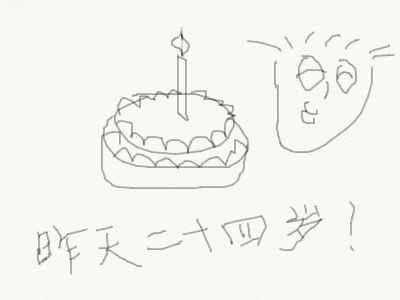 昨天二十四岁！